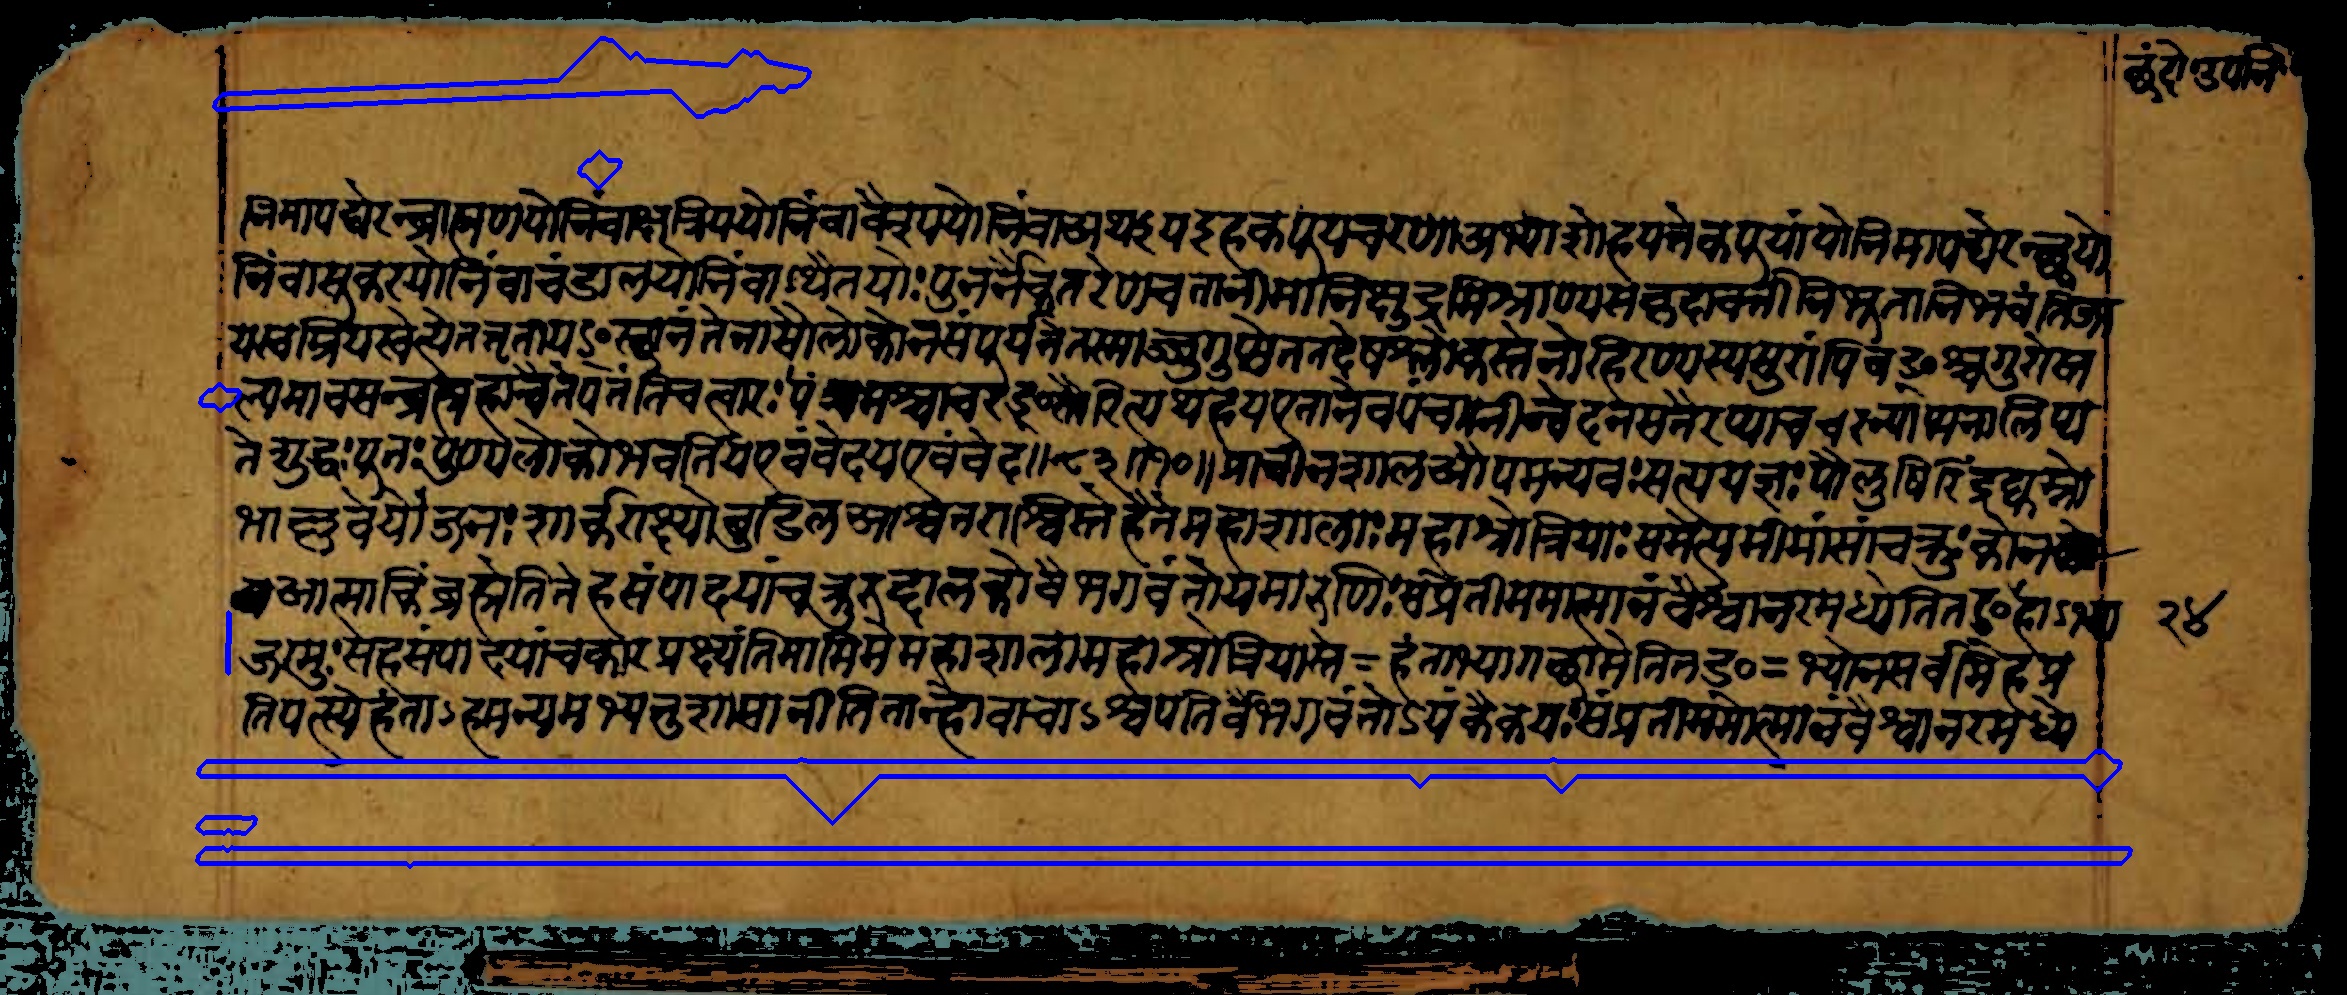 छांदो उपनि
निमापद्येरन्ब्राह्मणयोनिंवाक्षत्रिययोनिंवावैश्ययोनिंवाअथऽयइहकपूयचरणाअभ्याशोहयत्तेकपूयांयोनिमापद्येरन्श्वयो
निंवासूकरयोनिंवाचंडालयोनिंवाऽथैतयोःपुनर्नैकतरेणचतानीमानिक्षुद्रमिश्राण्यसकृदावर्तीनिभूतानिभवंतिजा
यस्वम्रियस्वेत्येतत्तृतीयऽ॰स्थानंतेनासौलोकोनसंपूर्यतेतस्माज्जुगुप्सेततदेषश्लोकस्तेनोहिरण्यस्यसुरांपिबऽ॰श्चगुरोस्त
ल्पमावसन्ब्रह्महाचैतेपतंतिचत्वारःपंचमश्चाचरऽ॰स्तैरित्यथहयएतानेवपंचाग्नीन्वेदनसतैरप्याचरन्पाप्मनालिप्य
तेशुद्धःपूतःपुण्यलोकोभवतियएवंवेदयएवंवेद॥॥१०॥प्राचीनशालऔपमन्यवःसत्ययज्ञःपौलुषिरिंद्रद्युम्नो
भाल्लवेयोजनःशार्कराक्ष्योबुडिलआश्वतराश्विस्तेहैतेमहाशालाःमहाश्रोत्रियाःसमेत्यमीमांसांचक्रुःकोन
आत्माकिंब्रह्मेतितेहसंपादयांचक्रुरुद्दालकोवैभगवंतोयमारुणिःसंप्रतीममात्मानंवैश्वानरमध्येतितऽ॰हाऽभ्या
जग्मुःसहसंपादयांचकारप्रक्ष्यंतिमामिमेमहाशालामहाश्रोत्रियास्ते=हंताभ्यागछामेतितऽ॰=भ्योनसर्वमिहप्र
२४
तिपत्स्येहंताऽहमन्यमभ्यनुशासानीतितान्होवाचाऽश्वपतिर्वैभगवंतोऽयंकैकेयःसंप्रतीममात्मानंवैश्वानरमध्ये